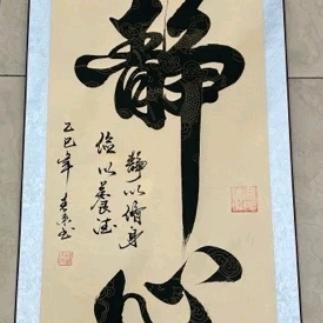 静心
静以修身
俭以养德
乙巳年